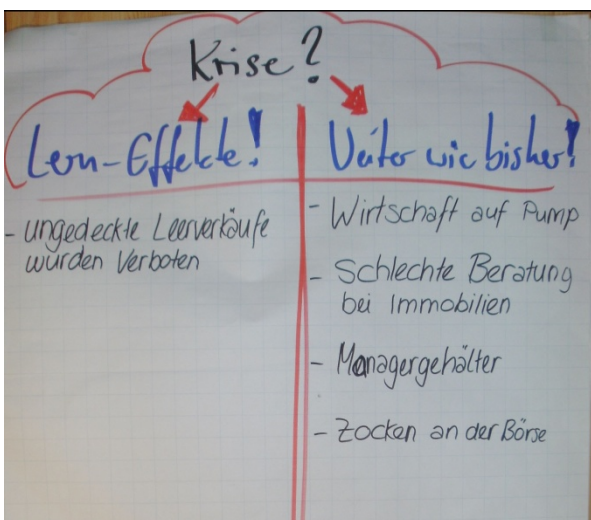 Krise?
Lern-Effekte!
- ungedeckte Leerverkäufe
wurden Verboten
Weiter wie bisher!
- Wirtschaft auf Pump
- Schlechte Beratung
bei Immobilien
- Managergehälter
- Zocken an der Börse